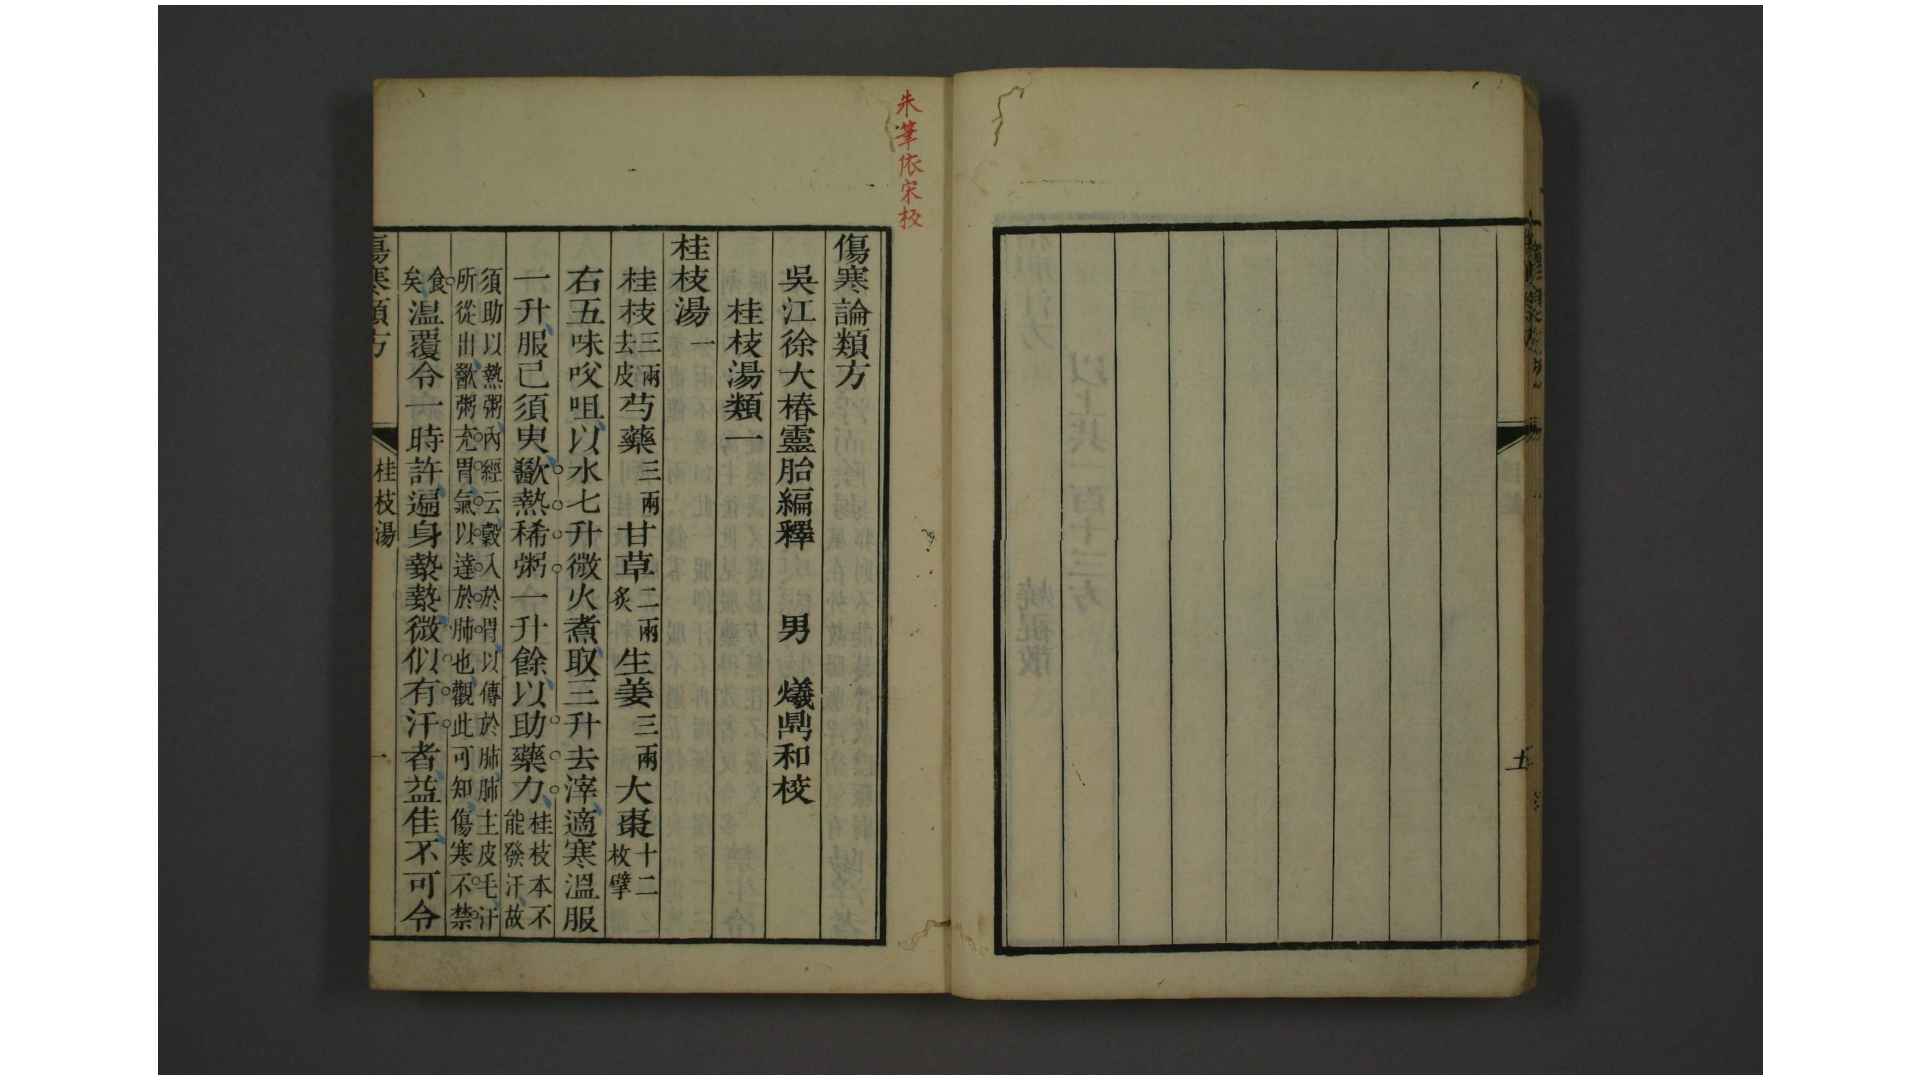 朱筆依宋校
傷寒論類方
吳江徐大椿靈胎編釋 男 爔鼎和校
桂枝湯類一
桂枝湯一
桂枝三兩去皮芍藥三兩甘草二兩炙生姜三兩大棗十二枚擘
右五味㕮咀以水七升微火煮取三升去滓適寒溫服
一升服已須臾歠熱稀粥一升餘以助藥力桂枝本不能發汗故
須助以熱粥內經云穀入於胃以傳於肺肺主皮毛汗所從出歠粥充胃氣以達於肺也觀此可知傷寒不禁
食矣温覆令一時許遍身漐漐微似有汗者益佳不可令
傷寒類方
桂枝湯
一